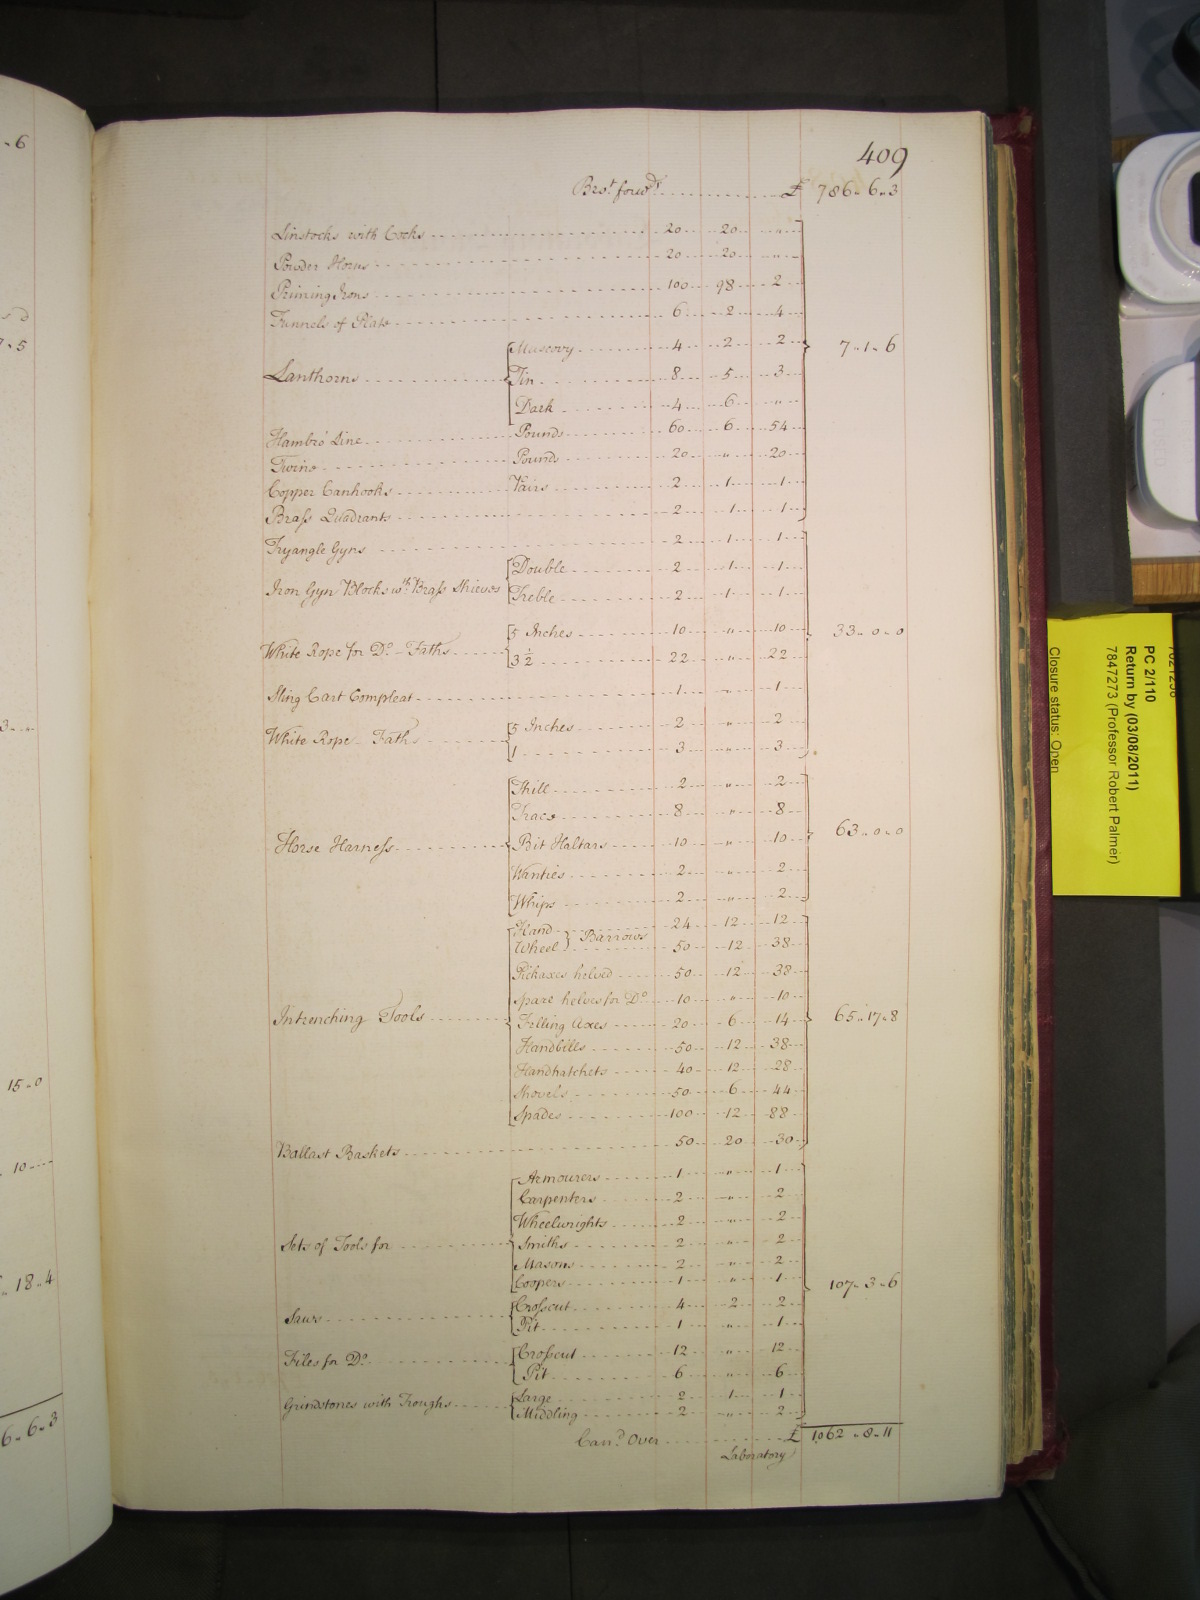 409
Bro.t forw.d £ 786 „ 6 „ 3
Linstocks with Cocks 20 20 „
Powder Horns 20 20 „
Priming Irons 100 98 2
Funnels of Plate 6 2 4
Lanthorns Muscovy 4 2 2 7 „ 1 „ 6
Tin 8 5 3
Dark 4 6 „
Hambro' Line Pounds 60 6 54
Twine Pounds 20 „ 20
Copper Canhooks Pairs 2 1 1
Brass Quadrants 2 1 1
Tryangle Gyns 2 1 1
Iron Gyn Blocks w.th Brass Shieves Double 2 1 1
Treble 2 1 1
White Rope for D.o - Faths 5 Inches 10 „ 10 33 „ 0 „ 0
3 1/2 22 „ 22
Sling Cart Compleat 1 „ 1
White Rope - Faths 5 Inches 2 „ 2
1 3 „ 3
Horse Harness Thill 2 „ 2
Trace 8 „ 8
Bit Haltars 10 „ 10 63 „ 0 „ 0
Wanties 2 „ 2
Whips 2 „ 2
Intrenching Tools Hand Barrows 24 12 12
Wheel 50 12 38
Pickaxes helved 50 12 38
Spare helves for D.o 10 „ 10
Felling Axes 20 6 14 65 „ 17 „ 8
Handbills 50 12 38
Handhatchets 40 12 28
Shovels 50 6 44
Spades 100 12 88
Ballast Baskets 50 20 30
Sets of Tools for Armourers 1 „ 1
Carpenters 2 „ 2
Wheelwrights 2 „ 2
Smiths 2 „ 2
Masons 2 „ 2
Coopers 1 „ 1 107 „ 3 „ 6
Saws Crosscut 4 2 2
Pit 1 „ 1
Files for D.o Crosscut 12 „ 12
Pit 6 „ 6
Grindstones with Troughs Large 2 1 1
Middling 2 „ 2
Carr.d Over £ 1062 „ 8 „ 11
Laboratory
PC 2/110
Return by (03/08/2011)
7847273 (Professor Robert Palmer)
Closure status: Open
- 6
7 „ 5
3
15 „ 0
10
18 „ 4
6 „ 6 „ 3